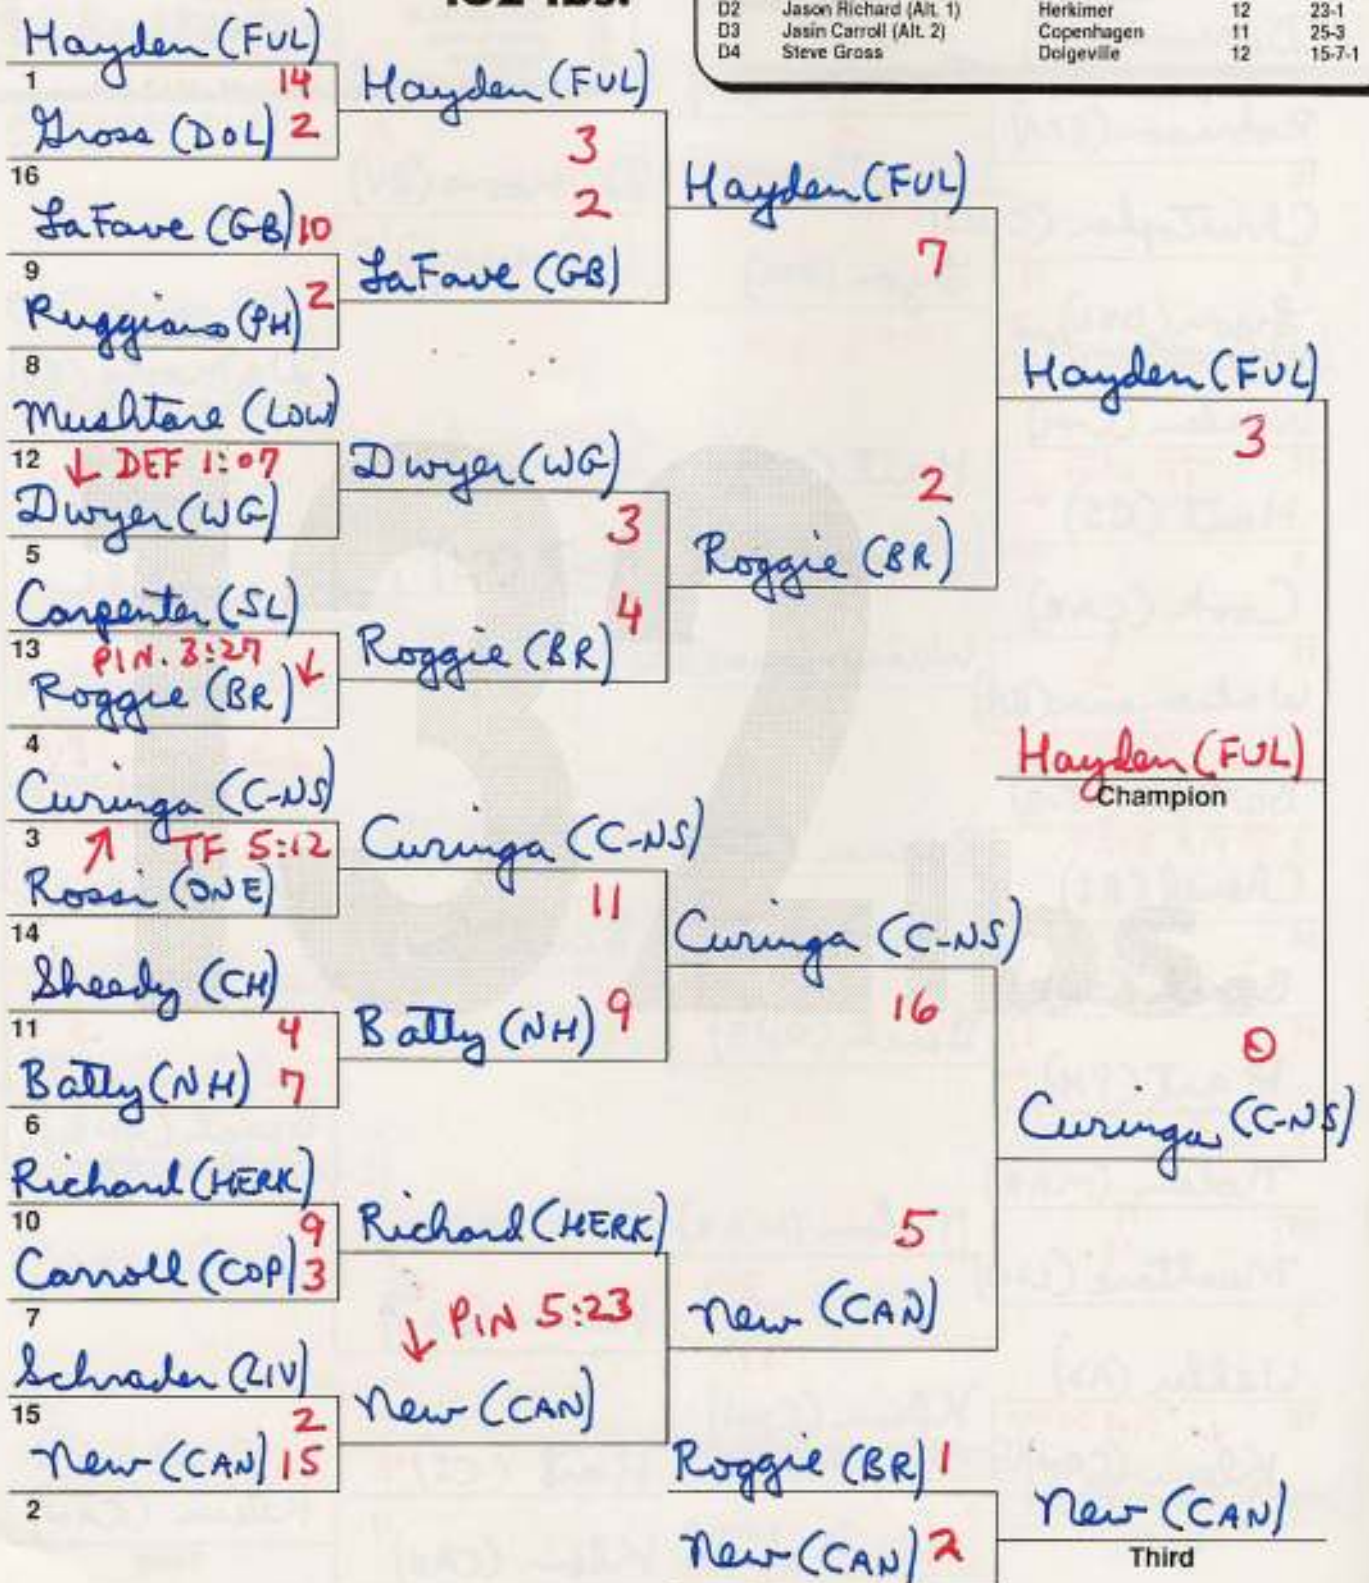 132 lbs.
D2 Jason Richard (Alt. 1) Herkimer 12 23-1
D3 Jasin Carroll (Alt. 2) Copenhagen 11 25-3
D4 Steve Gross Dolgeville 12 15-7-1
Hayden (FUL)
1 14
Gross (DOL) 2
16
LaFave (GB) 10
9
Ruggiano (PH) 2
8
Mushtare (LOW)
12 ↓ DEF 1:07
Dwyer (WG)
5
Carpenter (SL)
13 PIN. 3:27 ↓
Roggie (BR)
4
Curinga (C-NS)
3 ↗ TF 5:12
Rossi (ONE)
14
Sheedy (CH)
11 4
Batty (NH) 7
6
Richard (HERK)
10 9
Carroll (COP) 3
7
Schrader (LIV)
15 2
New (CAN) 15
2
Hayden (FUL)
3
2
LaFave (GB)
Dwyer (WG)
3
4
Roggie (BR)
Curinga (C-NS)
11
Batty (NH) 9
Richard (HERK)
↓ PIN 5:23
New (CAN)
Hayden (FUL)
7
2
Roggie (BR)
Curinga (C-NS)
16
5
New (CAN)
Roggie (BR) 1
New (CAN) 2
Hayden (FUL)
3
Hayden (FUL)
Champion
0
Curinga (C-NS)
New (CAN)
Third
132